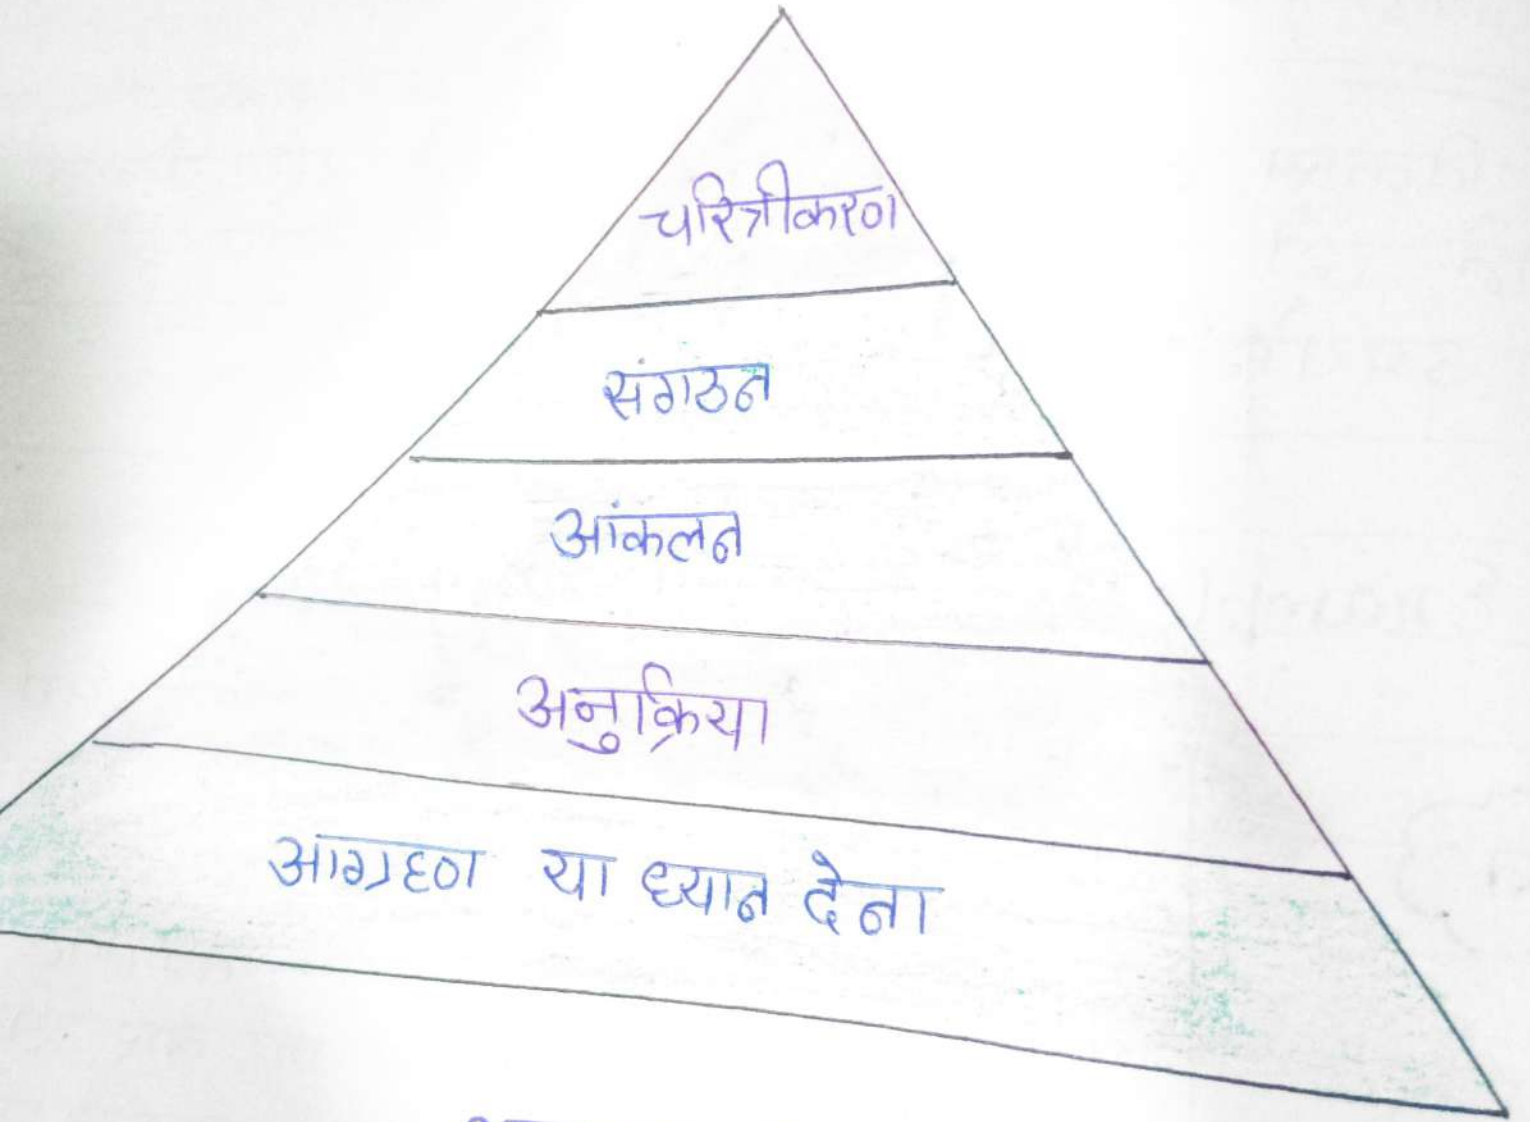 चरित्रीकरण
संगठन
आंकलन
अनुक्रिया
आग्रहण या ध्यान देना